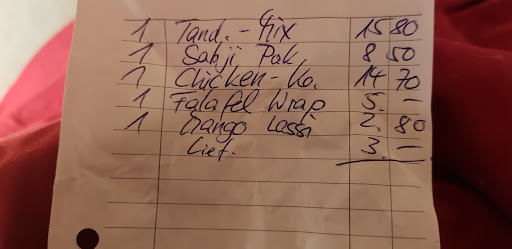 1 Tand.-Mix 15 80
1 Sabji Pak. 8 50
1 Chicken-Ko. 14 70
1 Falafel Wrap 5. -
1 Mango Lassi 2. 80
Lief. 3. -